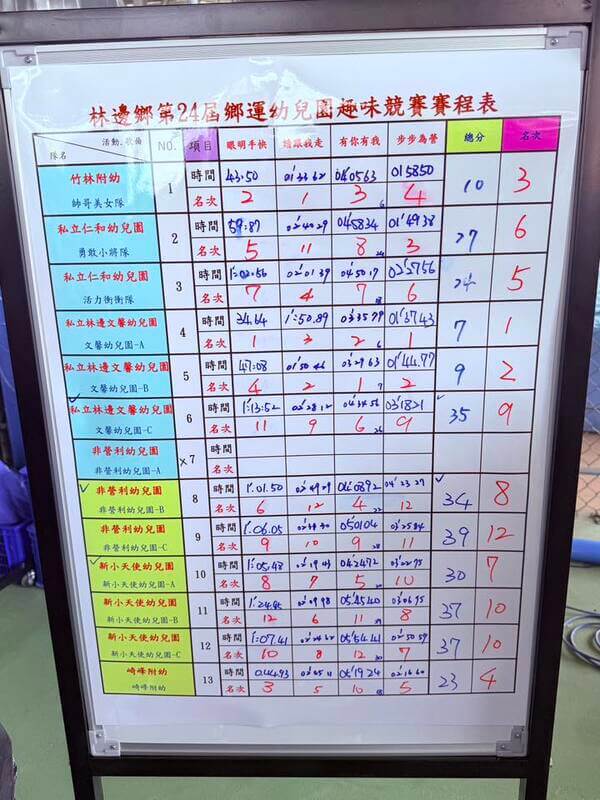 林邊鄉第24屆鄉運幼兒園趣味競賽賽程表
隊名 活動.收播 NO. 項目 眼明手快 請跟我走 有你有我 步步為營 總分 名次
竹林附幼 1 時間 43:50 01'33 62 04'0563 01 5850 10 3
帥哥美女隊 名次 2 1 3 6 4
私立仁和幼兒園 2 時間 59:87 02'40 29 04'5834 01'49 38 27 6
勇敢小將隊 名次 5 11 8 24 3
私立仁和幼兒園 3 時間 1:02:56 02'01 39 04'50 17 02'5756 24 5
活力衝衝隊 名次 7 4 7 18 6
私立林邊文馨幼兒園 4 時間 34.64 1':50.89 03'35 79 01'37 43 7 1
文馨幼兒園-A 名次 1 3 2 6 1
私立林邊文馨幼兒園 5 時間 47:08 01'50 46 03'29 63 01'44.77 9 2
文馨幼兒園-B 名次 4 2 1 7 2
私立林邊文馨幼兒園 6 時間 1:13:52 02'28 12 04'34 56 03'1821 35 9
文馨幼兒園-C 名次 11 9 6 26 9
非營利幼兒園 ×7 時間
非營利幼兒園-A 名次
非營利幼兒園 8 時間 1:01.50 02'49 29 04'0892 04'23 29 34 8
非營利幼兒園-B 名次 6 12 4 22 12
非營利幼兒園 9 時間 1:06.05 05'0104 03'2584 39 12
非營利幼兒園-C 名次 9 10 9 28 11
新小天使幼兒園 10 時間 1:05.48 04'2472 03'22 75 30 7
新小天使幼兒園-A 名次 8 7 5 10
新小天使幼兒園 11 時間 1:24.45 02'09 98 05'45 40 03'06 75 37 10
新小天使幼兒園-B 名次 12 6 11 8
新小天使幼兒園 12 時間 1:07.41 05'54.41 02'50 59 37 10
新小天使幼兒園-C 名次 10 8 12 30 7
崎峰附幼 13 時間 0:44.93 02'05 11 05'19 24 02'16 60 23 4
名次 3 5 10 18 5